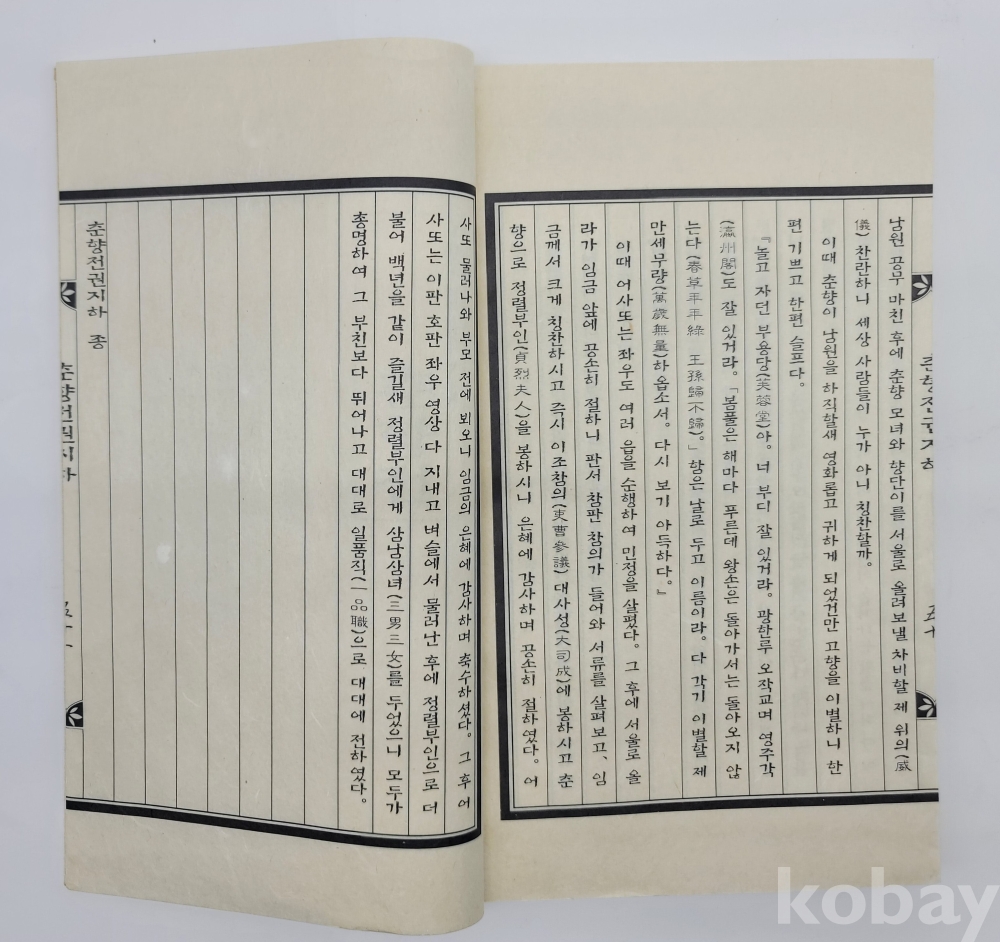 남원 공부 마친 후에 춘향 모녀와 향단이를 서울로 올려보낼 차비할 제 위의(威
儀) 찬란하니 세상 사람들이 누가 아니 칭찬할까.
이때 춘향이 남원을 하직할새 영화롭고 귀하게 되었건만 고향을 이별하니 한
편 기쁘고 한편 슬프다.
『놀고 자던 부용당(芙蓉堂)아. 너 부디 잘 있거라. 광한루 오작교며 영주각
(瀛州閣)도 잘 있거라. 「봄풀은 해마다 푸른데 왕손은 돌아가서는 돌아오지 않
는다(春草年年綠 王孫歸不歸).」 항은 날로 두고 이름이라. 다 각기 이별할 제
만세무량(萬歲無量)하옵소서. 다시 보기 아득하다.』
이때 어사또는 좌우도 여러 읍을 순행하여 민정을 살폈다. 그 후에 서울로 올
라가 임금 앞에 공손히 절하니 판서 참판 창의가 들어와 서류를 살펴보고, 임
금께서 크게 칭찬하시고 즉시 이조참의(吏曹參議) 대사성(大司成)에 봉하시고 춘
향으로 정렬부인(貞烈夫人)을 봉하시니 은혜에 감사하며 공손히 절하였다. 어
춘향전권지하
五十
사또 물러나와 부모 전에 뵈오니 임금의 은혜에 감사하며 축수하셨다. 그 후 어
사또는 이판 호판 좌우 영상 다 지내고 벼슬에서 물러난 후에 정렬부인으로 더
불어 백년을 같이 즐길새 정렬부인에게 삼남삼녀(三男三女)를 두었으니 모두가
총명하여 그 부친보다 뛰어나고 대대로 일품직(一品職)으로 대대에 전하였다.
춘향전권지하 종
춘향전권지하
五十一
kobay